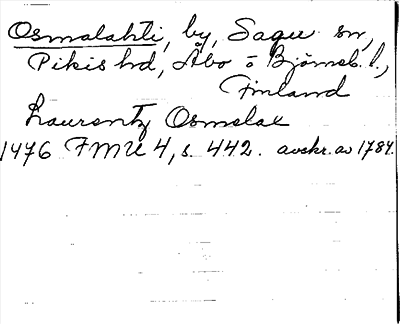 Osmalahti, by, Sagu sn,
Pikis hd, Åbo o Björneb. l.,
Finland
Laurentz Osmalax
1476 FMU 4, s. 442. avskr. av 1784.